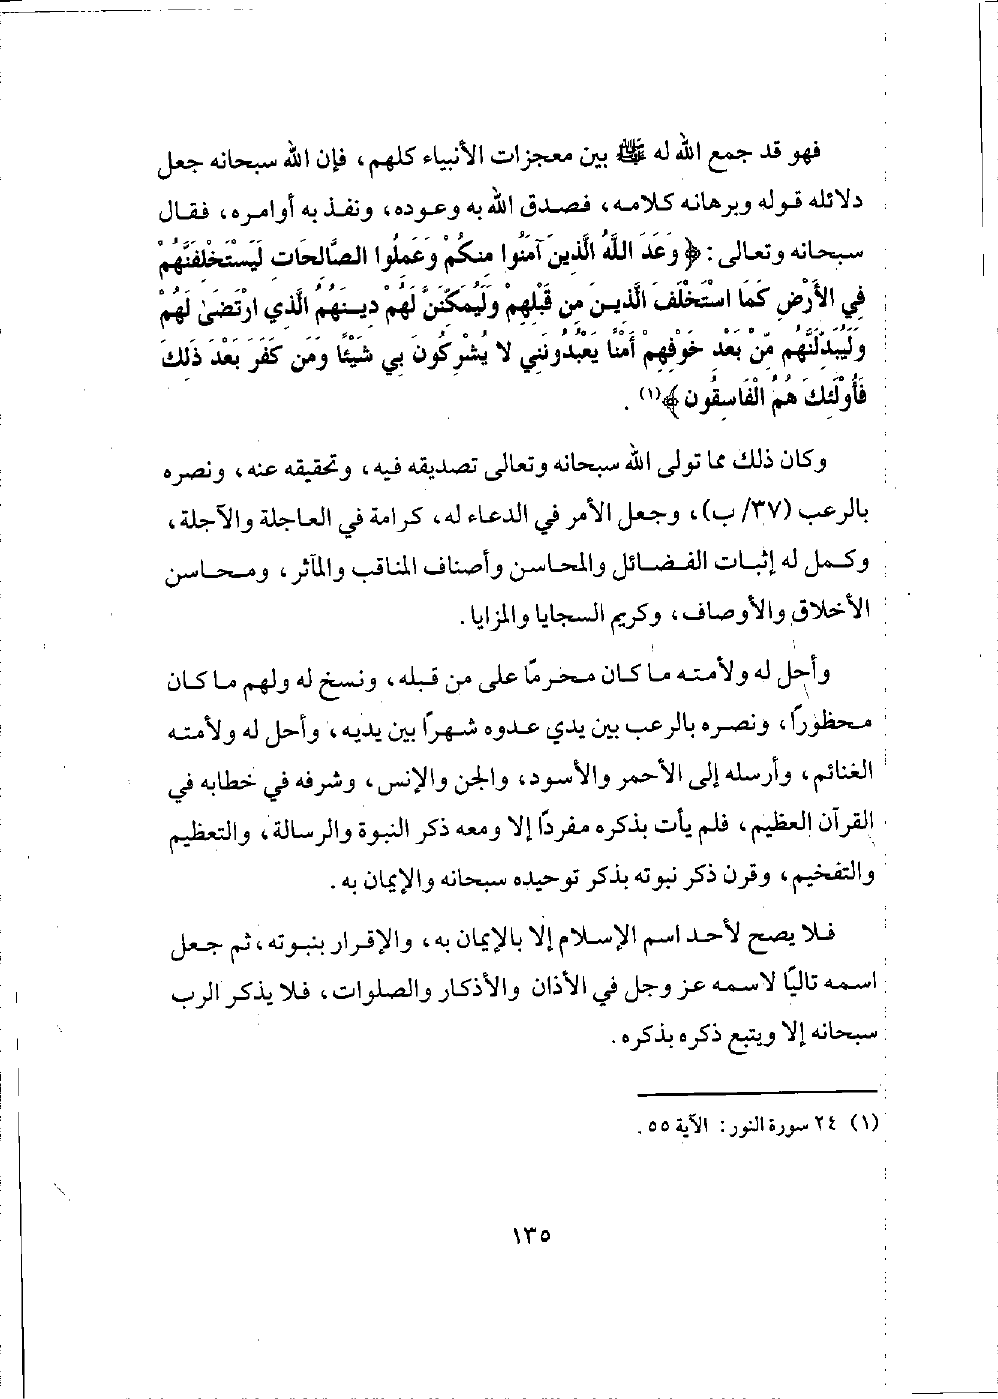 فهو قد جمع الله له ﷺ بين معجزات الأنبياء كلهم، فإن الله سبحانه جعل
دلائله قوله وبرهانه كلامه، فصدق الله به وعوده، ونفذ به أوامره، فقال
سبحانه وتعالى: ﴿وَعَدَ اللَّهُ الَّذِينَ آمَنُوا مِنكُمْ وَعَمِلُوا الصَّالِحَاتِ لَيَسْتَخْلِفَنَّهُمْ
فِي الأَرْضِ كَمَا اسْتَخْلَفَ الَّذِينَ مِن قَبْلِهِمْ وَلَيُمَكِّنَنَّ لَهُمْ دِينَهُمُ الَّذِي ارْتَضَىٰ لَهُمْ
وَلَيُبَدِّلَنَّهُم مِّنْ بَعْدِ خَوْفِهِمْ أَمْنًا يَعْبُدُونَنِي لا يُشْرِكُونَ بِي شَيْئًا وَمَن كَفَرَ بَعْدَ ذَلِكَ
فَأُوْلَئِكَ هُمُ الْفَاسِقُونَ﴾(١).
وكان ذلك مما تولى الله سبحانه وتعالى تصديقه فيه، وتحقيقه عنه، ونصره
بالرعب (٣٧/ ب)، وجعل الأمر في الدعاء له، كرامة في العاجلة والآجلة،
وكمل له إثبات الفضائل والمحاسن وأصناف المناقب والمآثر، ومحاسن
الأخلاق والأوصاف، وكريم السجايا والمزايا.
وأحل له ولأمته ما كان محرمًا على من قبله، ونسخ له ولهم ما كان
محظورًا، ونصره بالرعب بين يدي عدوه شهرًا بين يديه، وأحل له ولأمته
الغنائم، وأرسله إلى الأحمر والأسود، والجن والإنس، وشرفه في خطابه في
القرآن العظيم، فلم يأت بذكره مفردًا إلا ومعه ذكر النبوة والرسالة، والتعظيم
والتفخيم، وقرن ذكر نبوته بذكر توحيده سبحانه والإيمان به.
فلا يصح لأحد اسم الإسلام إلا بالإيمان به، والإقرار بنبوته، ثم جعل
اسمه تاليًا لاسمه عز وجل في الأذان والأذكار والصلوات، فلا يذكر الرب
سبحانه إلا ويتبع ذكره بذكره.
(١) ٢٤ سورة النور: الآية ٥٥.
١٣٥